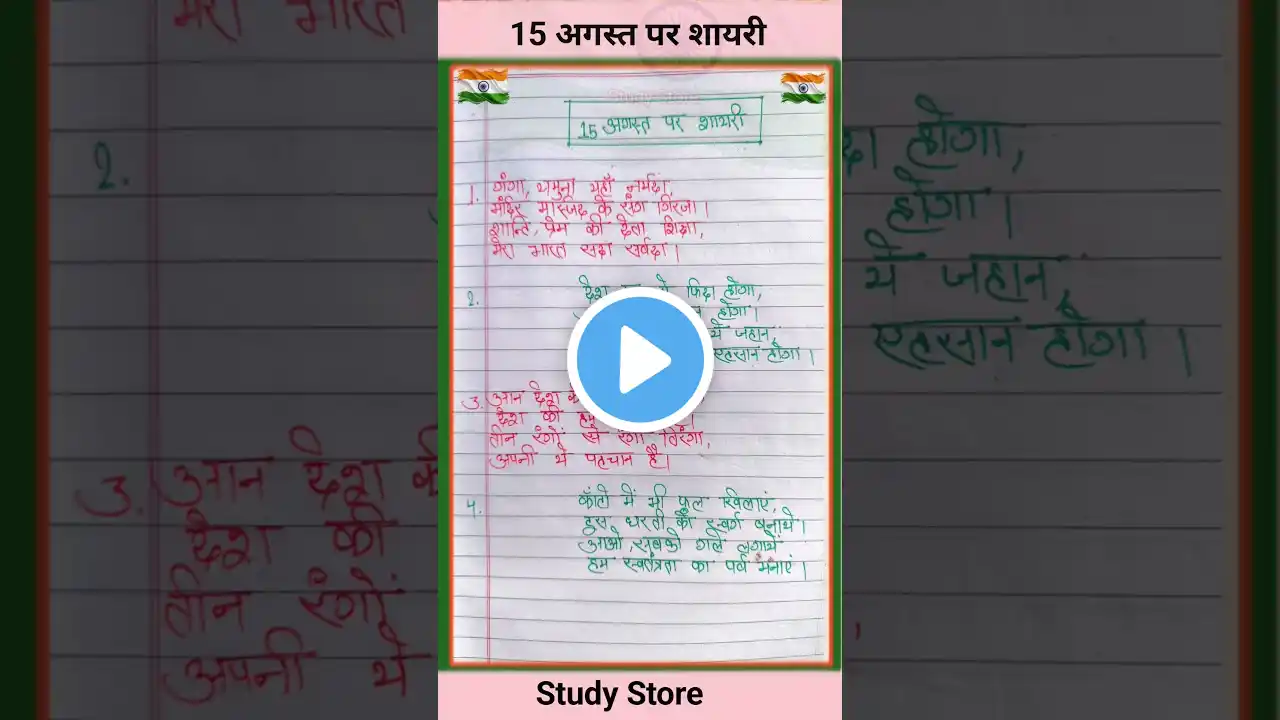 15 अगस्त पर शायरी
15 अगस्त पर शायरी
1. गंगा, यमुना यहाँ नर्मदा,
मंदिर मस्जिद के संग गिरजा।
शान्ति, प्रेम की देता शिक्षा,
मेरा भारत सदा सर्वदा।
2. देश फिदा होगा,
होगा।
ये जहान,
एहसान होगा।
3. आन देश की
देश की हम
तीन रंगों से रंगा तिरंगा,
अपनी ये पहचान है।
4. काँटो में भी फूल खिलाएं,
इस धरती को स्वर्ग बनाये।
आओ, सबको गले लगायें
हम स्वतंत्रता का पर्व मनाएं।
Study Store